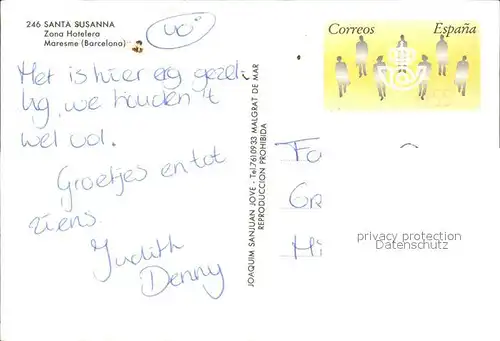 246 SANTA SUSANNA
Zona Hotelera
Maresme (Barcelona)
40°
Het is hier erg gezel-
lig, we houden 't
wel vol.
Groetjes en tot
ziens.
Judith
Denny
JOAQUIM SANJUAN JOVE - Tel.7610933 MALGRAT DE MAR
REPRODUCCION PROHIBIDA
Correos España
Fa
Gr
Mi
privacy protection
Datenschutz